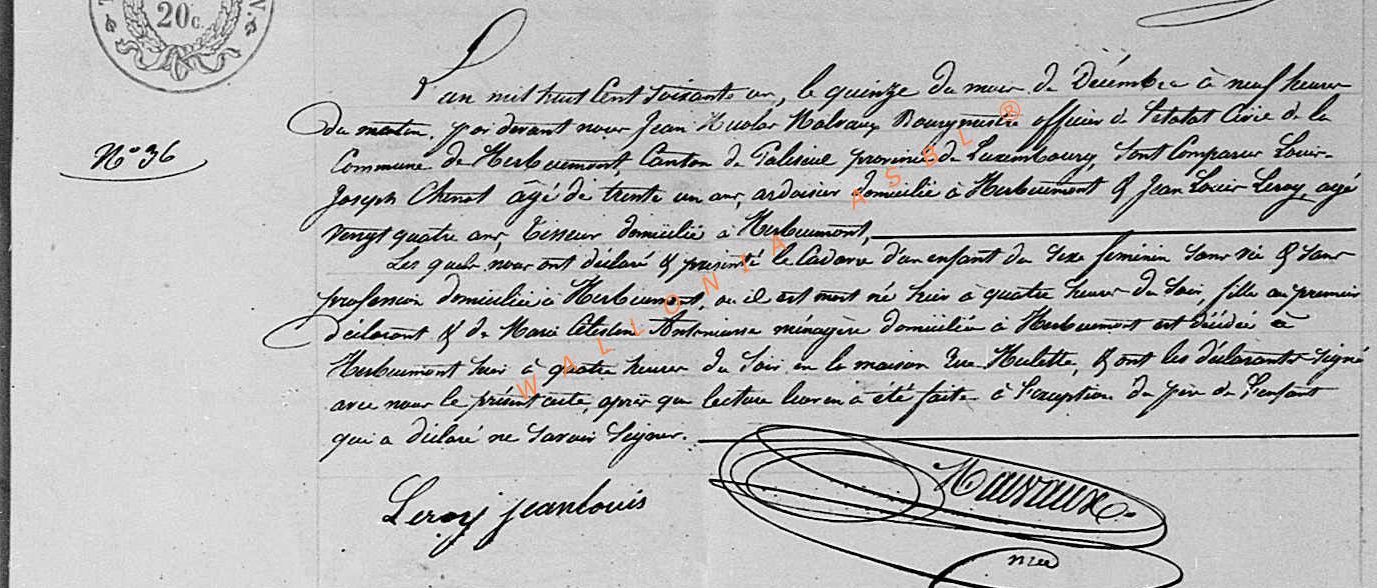 20c.
N° 36
L'an mil huit cent soixante un, le quinze du mois de Décembre à neuf heures
du matin, par devant nous Jean Nicolas Malvaux Bourgmestre officier de l'Etat Civil de la
Commune de Herbeumont, Canton de Paliseul province de Luxembourg, sont Comparus Louis
Joseph Chenot agé de trente un ans, ardoisier domicilié à Herbeumont & Jean Louis Leroy agé
vengt quatre ans, Tisseur domicilié à Herbeumont,
Les quels nous ont déclaré & présenté le Cadavre d'un enfant du sexe féminin sans vie & sans
profession domicilié à Herbeumont, ou il est mort né hier à quatre heures du soir, fille au premier
déclarant & de Marie Célestine ménagère domiciliée à Herbeumont est décédée à
Herbeumont hier à quatre heures du soir en la maison Rue Hulette, & ont les déclarants signé
avec nous le présent acte, après que lecture leur en a été faite à l'exception du père de l'enfant
qui a déclaré ne savoir signer.
Leroy jean louis
Malvaux
WALLONIA ASBL ®